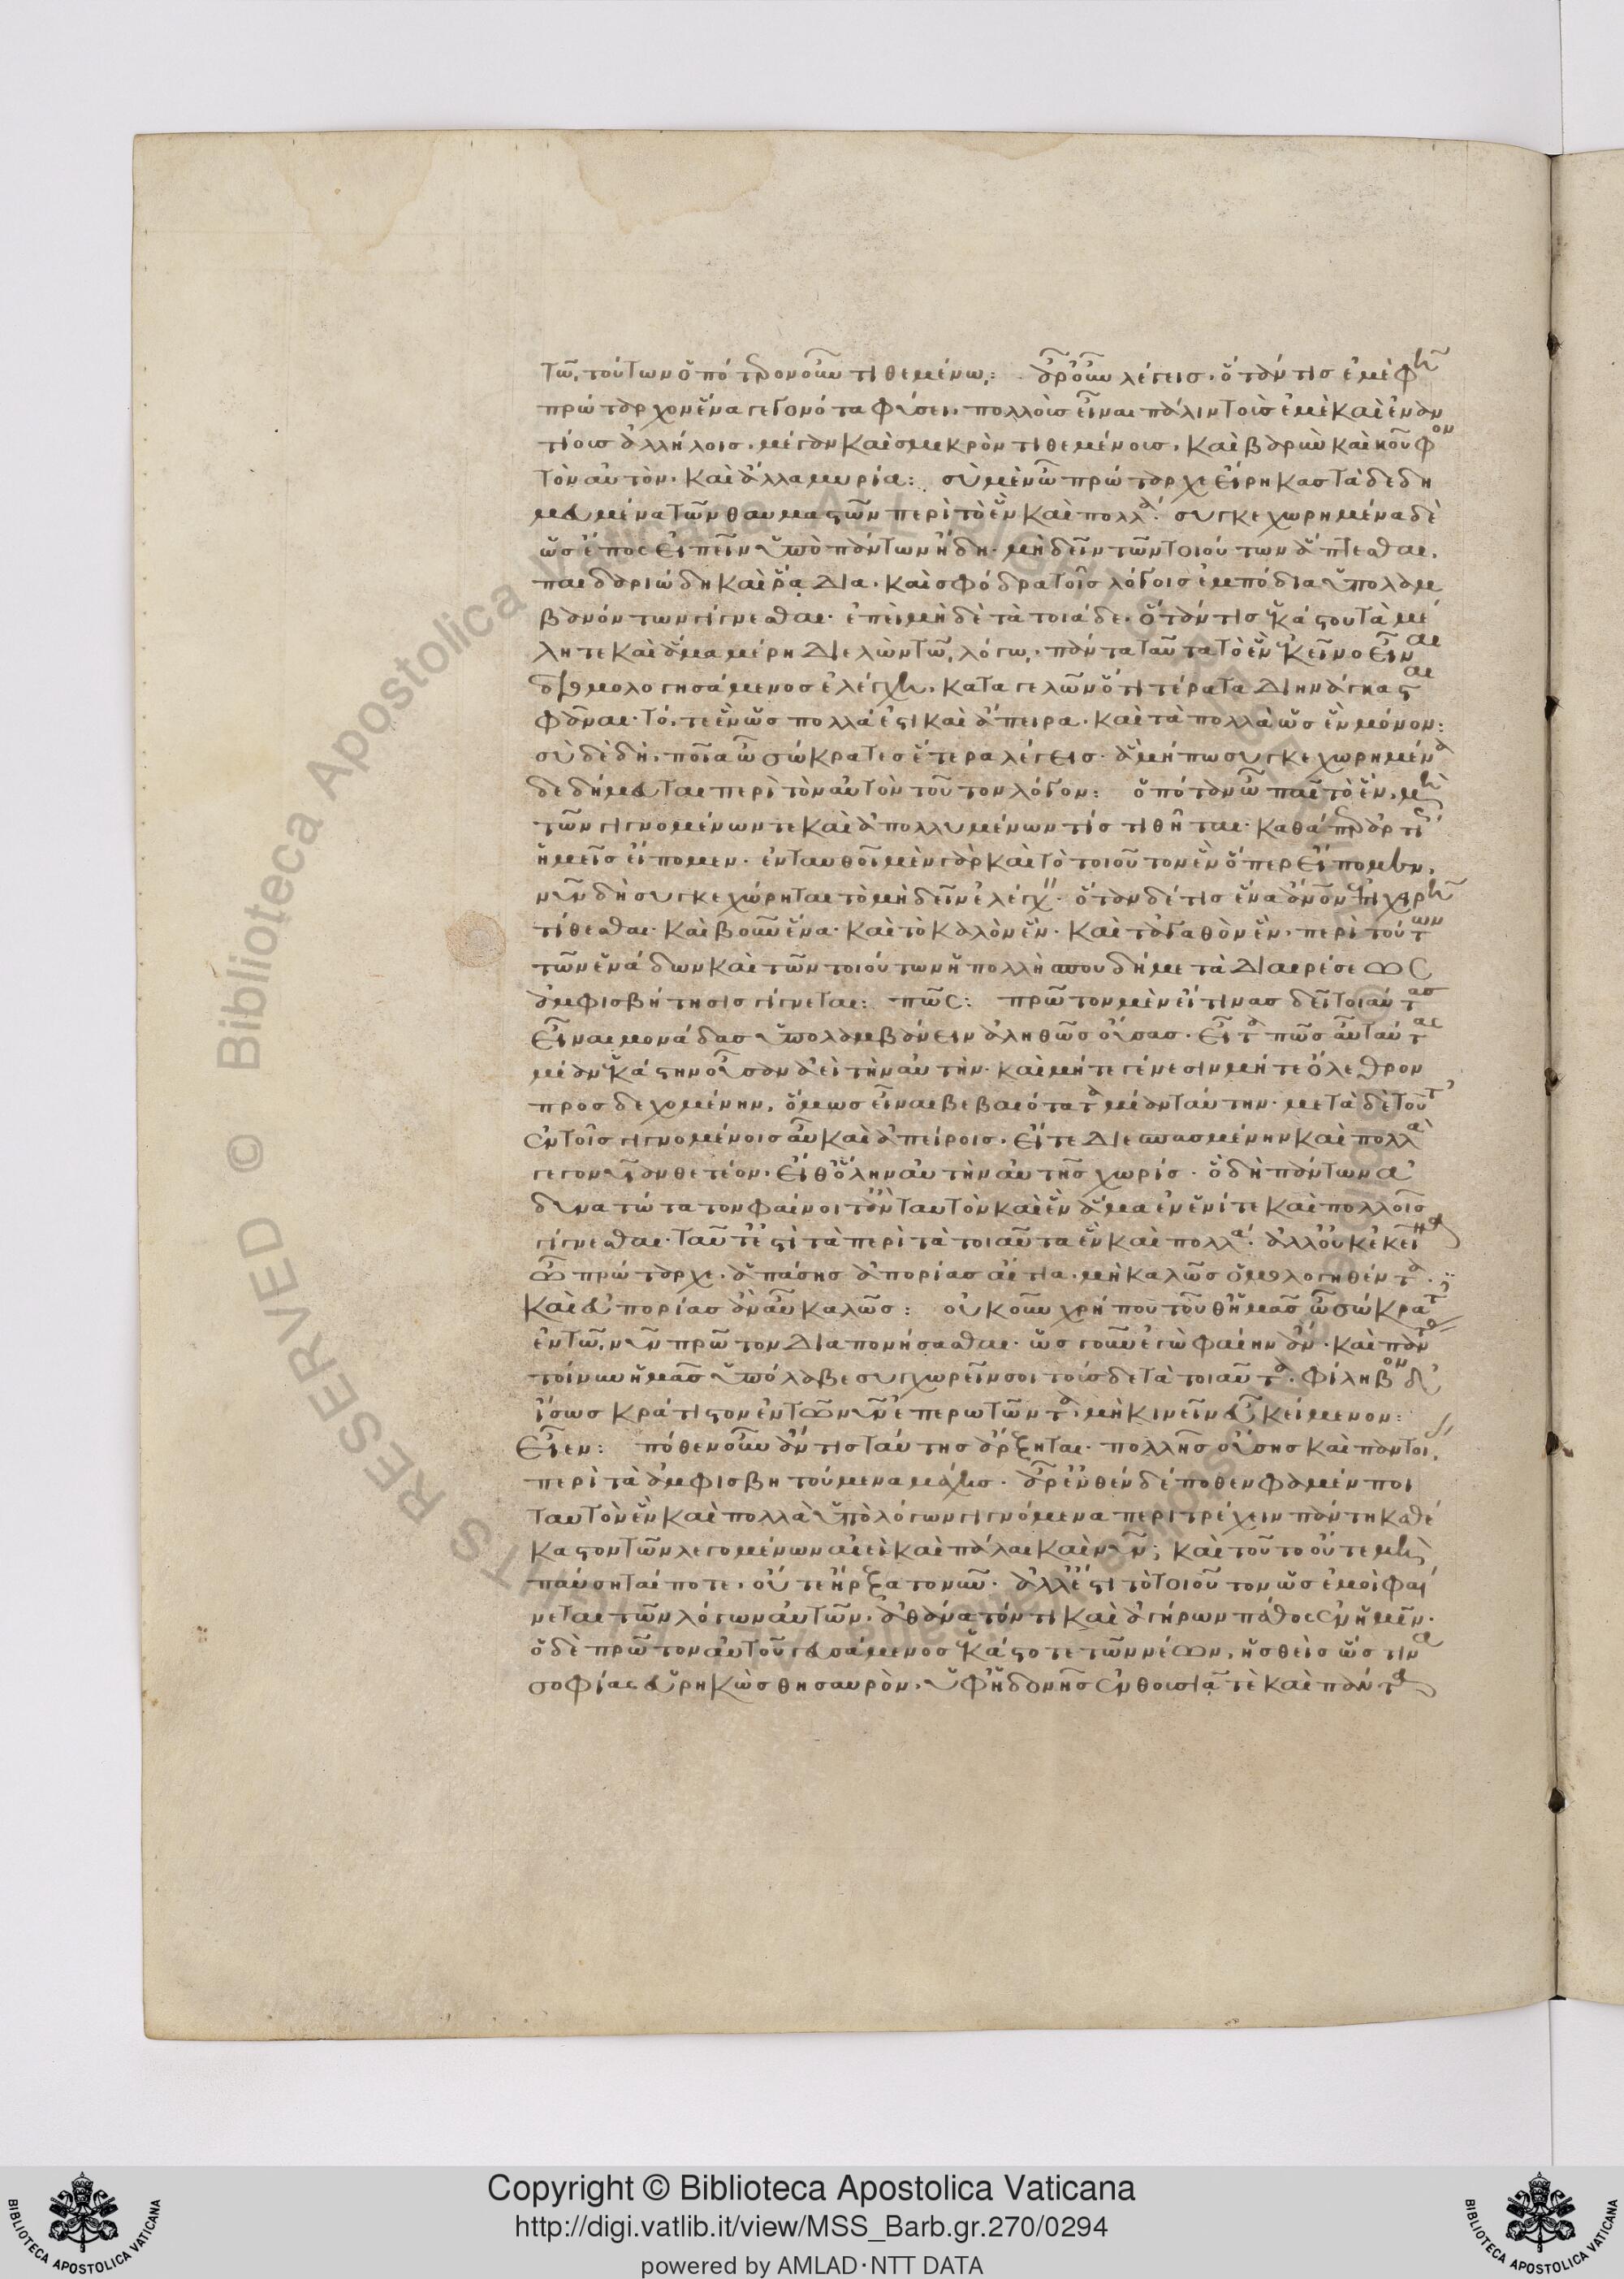 τῶι τούτων ὁποτερονοῦν τιθεμένωι: ἆρ' οὖν λέγεις. ὅταν τις ἐμὲ φῆ
πρώταρχον ἕνα γεγονότα φύσει. πολλοὺς εἶναι πάλιν τοὺς ἐμὲ καὶ ἐναν
τίους ἀλλήλοις. μέγαν καὶ σμικρὸν τιθεμένους. καὶ βαρὺν καὶ κοῦφον
τὸν αὐτὸν. καὶ ἄλλα μυρία: σὺ μὲν ὦ πρώταρχε εἴρηκας τὰ δεδη
μευμένα τῶν θαυμαστῶν περὶ τὸ ἓν καὶ πολλά. συγκεχωρημένα δὲ
ὡς ἔπος εἰπεῖν ὑπὸ πάντων ἤδη. μὴ δεῖν τῶν τοιούτων ἅπτεσθαι.
παιδαριώδη καὶ ῥάιδια. καὶ σφόδρα τοῖς λόγοις ἐμπόδια ὑπολαμ
βανόντων γίγνεσθαι. ἐπεὶ μὴ δὲ τὰ τοιάδε. ὅταν τις ἑκάστου τὰ μέ
λη τε καὶ ἅμα μέρη διελὼν τῶι λόγωι. πάντα ταῦτα τὸ ἓν ἐκεῖνο εἶναι
διομολογησάμενος ἐλέγχηι. καταγελῶν ὅτι τέρατα διηνάγκασται
φάναι. τό, τε ἓν ὡς πολλά ἐστι καὶ ἄπειρα. καὶ τὰ πολλὰ ὡς ἓν μόνον:
σὺ δὲ δὴ ποῖα ὦ σώκρατες ἕτερα λέγεις. ἃ μήπω συγκεχωρημένα
δεδήμευται περὶ τὸν αὐτὸν τοῦτον λόγον: ὁπόταν ὦ παῖ τὸ ἓν. μὴ
τῶν γιγνομένων τε καὶ ἀπολλυμένων τίς τιθῆται. καθάπερ ἀρτίως
ἡμεῖς εἴπομεν. ἐνταυθοῖ μὲν γὰρ καὶ τὸ τοιοῦτον ἓν ὅπερ εἴπομεν.
νῦν δὴ συγκεχώρηται τὸ μὴ δεῖν ἐλέγχειν. ὅταν δέ τις ἕνα ἄνθρωπον ἐπιχειρῆ
τίθεσθαι. καὶ βοῦν ἕνα. καὶ τὸ καλὸν ἓν. καὶ τἀγαθὸν ἓν. περὶ τούτων
τῶν ἑνάδων καὶ τῶν τοιούτων ἡ πολλὴ σπουδὴ μετὰ διαιρέσεως
ἀμφισβήτησις γίγνεται: πῶς: πρῶτον μὲν εἴ τινας δεῖ τοιαύτας
εἶναι μονάδας ὑπολαμβάνειν ἀληθῶς οὔσας. εἶτα πῶς αὖ ταύτας
μίαν ἑκάστην οὖσαν ἀεὶ τὴν αὐτὴν. καὶ μήτε γένεσιν μήτε ὄλεθρον
προσδεχομένην. ὅμως εἶναι βεβαιότατα μίαν ταύτην. μετὰ δὲ τοῦτ'
ἐν τοῖς γιγνομένοις αὖ καὶ ἀπείροις. εἴτε διεσπασμένην καὶ πολλὰ
γεγονυῖαν θετέον. εἴθ' ὅλην αὐτὴν αὑτῆς χωρίς. ὃ δὴ πάντων ἀ
δυνατώτατον φαίνοιτ' ἂν ταυτὸν καὶ ἓν ἅμα ἐν ἑνί τε καὶ πολλοῖς
γίγνεσθαι. ταῦτ' ἔστι τὰ περὶ τὰ τοιαῦτα ἓν καὶ πολλά. ἀλλ' οὐκ ἐκεῖνα
ὦ πρώταρχε. ἁπάσης ἀπορίας αἴτια. μὴ καλῶς ὁμολογηθέντα.
καὶ εὐπορίας ἂν αὖ καλῶς: οὐκοῦν χρή που τοῦθ' ἡμᾶς ὦ σώκρατες
ἐν τῶι νῦν πρῶτον διαπονήσασθαι. ὡς γοῦν ἐγὼ φαίην ἄν. καὶ πάντας
τοίνυν ἡμᾶς ὑπόλαβε συγχωρεῖν σοι τούσδε τὰ τοιαῦτα. φίληβον δ'
ἴσως κράτιστον ἐν τῶι νῦν ἐπερωτῶντα. μὴ κινεῖν εὖ κείμενον:
εἶεν: πόθεν οὖν ἄν τις ταύτης ἄρξηται. πολλῆς οὔσης καὶ παντοίας
περὶ τὰ ἀμφισβητούμενα μάχης. ἆρ' ἐνθένδέ ποθεν φαμέν που
ταυτὸν ἓν καὶ πολλὰ ὑπὸ λόγων γιγνόμενα περιτρέχειν πάντη καθ' ἕ
καστον τῶν λεγομένων αἰεὶ καὶ πάλαι καὶ νῦν; καὶ τοῦτο οὔτε μὴ
παύσηταί ποτε. οὔτε ἤρξατο νῦν. ἀλλ' ἔστι τὸ τοιοῦτον ὡς ἐμοὶ φαί
νεται τῶν λόγων αὐτῶν. ἀθάνατόν τι καὶ ἀγήρων πάθος ἐν ἡμῖν.
ὁ δὲ πρῶτον αὐτοῦ γευσάμενος ἑκάστοτε τῶν νέων. ἡσθεὶς ὥς τινα
σοφίας εὑρηκὼς θησαυρὸν. ὑφ' ἡδονῆς ἐνθουσιᾶι τὲ καὶ πάντα
Copyright © Biblioteca Apostolica Vaticana
http://digi.vatlib.it/view/MSS_Barb.gr.270/0294
powered by AMLAD·NTT DATA